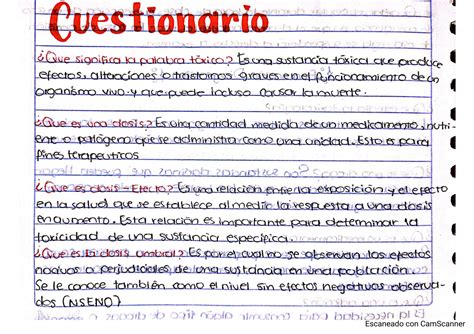 Cuestionario
¿Que significa la palabra tóxico? Es una sustancia tóxica que produce
efectos, alteraciones o trastornos graves en el funcionamiento de un
organismo vivo y que puede incluso causar la muerte.
¿Que es una dosis? Es una cantidad medida de un medicamento, nutri-
ente o patógeno que se administra como una unidad. Esto es para
fines terapeuticos
¿Que es dosis-Efecto? Es una relación entre la exposición y el efecto
en la salud que se establece al medir la respuesta a una dosis
en aumento. Esta relación es importante para determinar la
toxicidad de una sustancia especifica.
¿Que es la dosis umbral? Es por el cual no se observan los efectos
nocivos o perjudiciales de una sustancia en una población.
Se le conoce también como el nivel sin efectos negativos observa-
dos (NSENO)
Escaneado con CamScanner